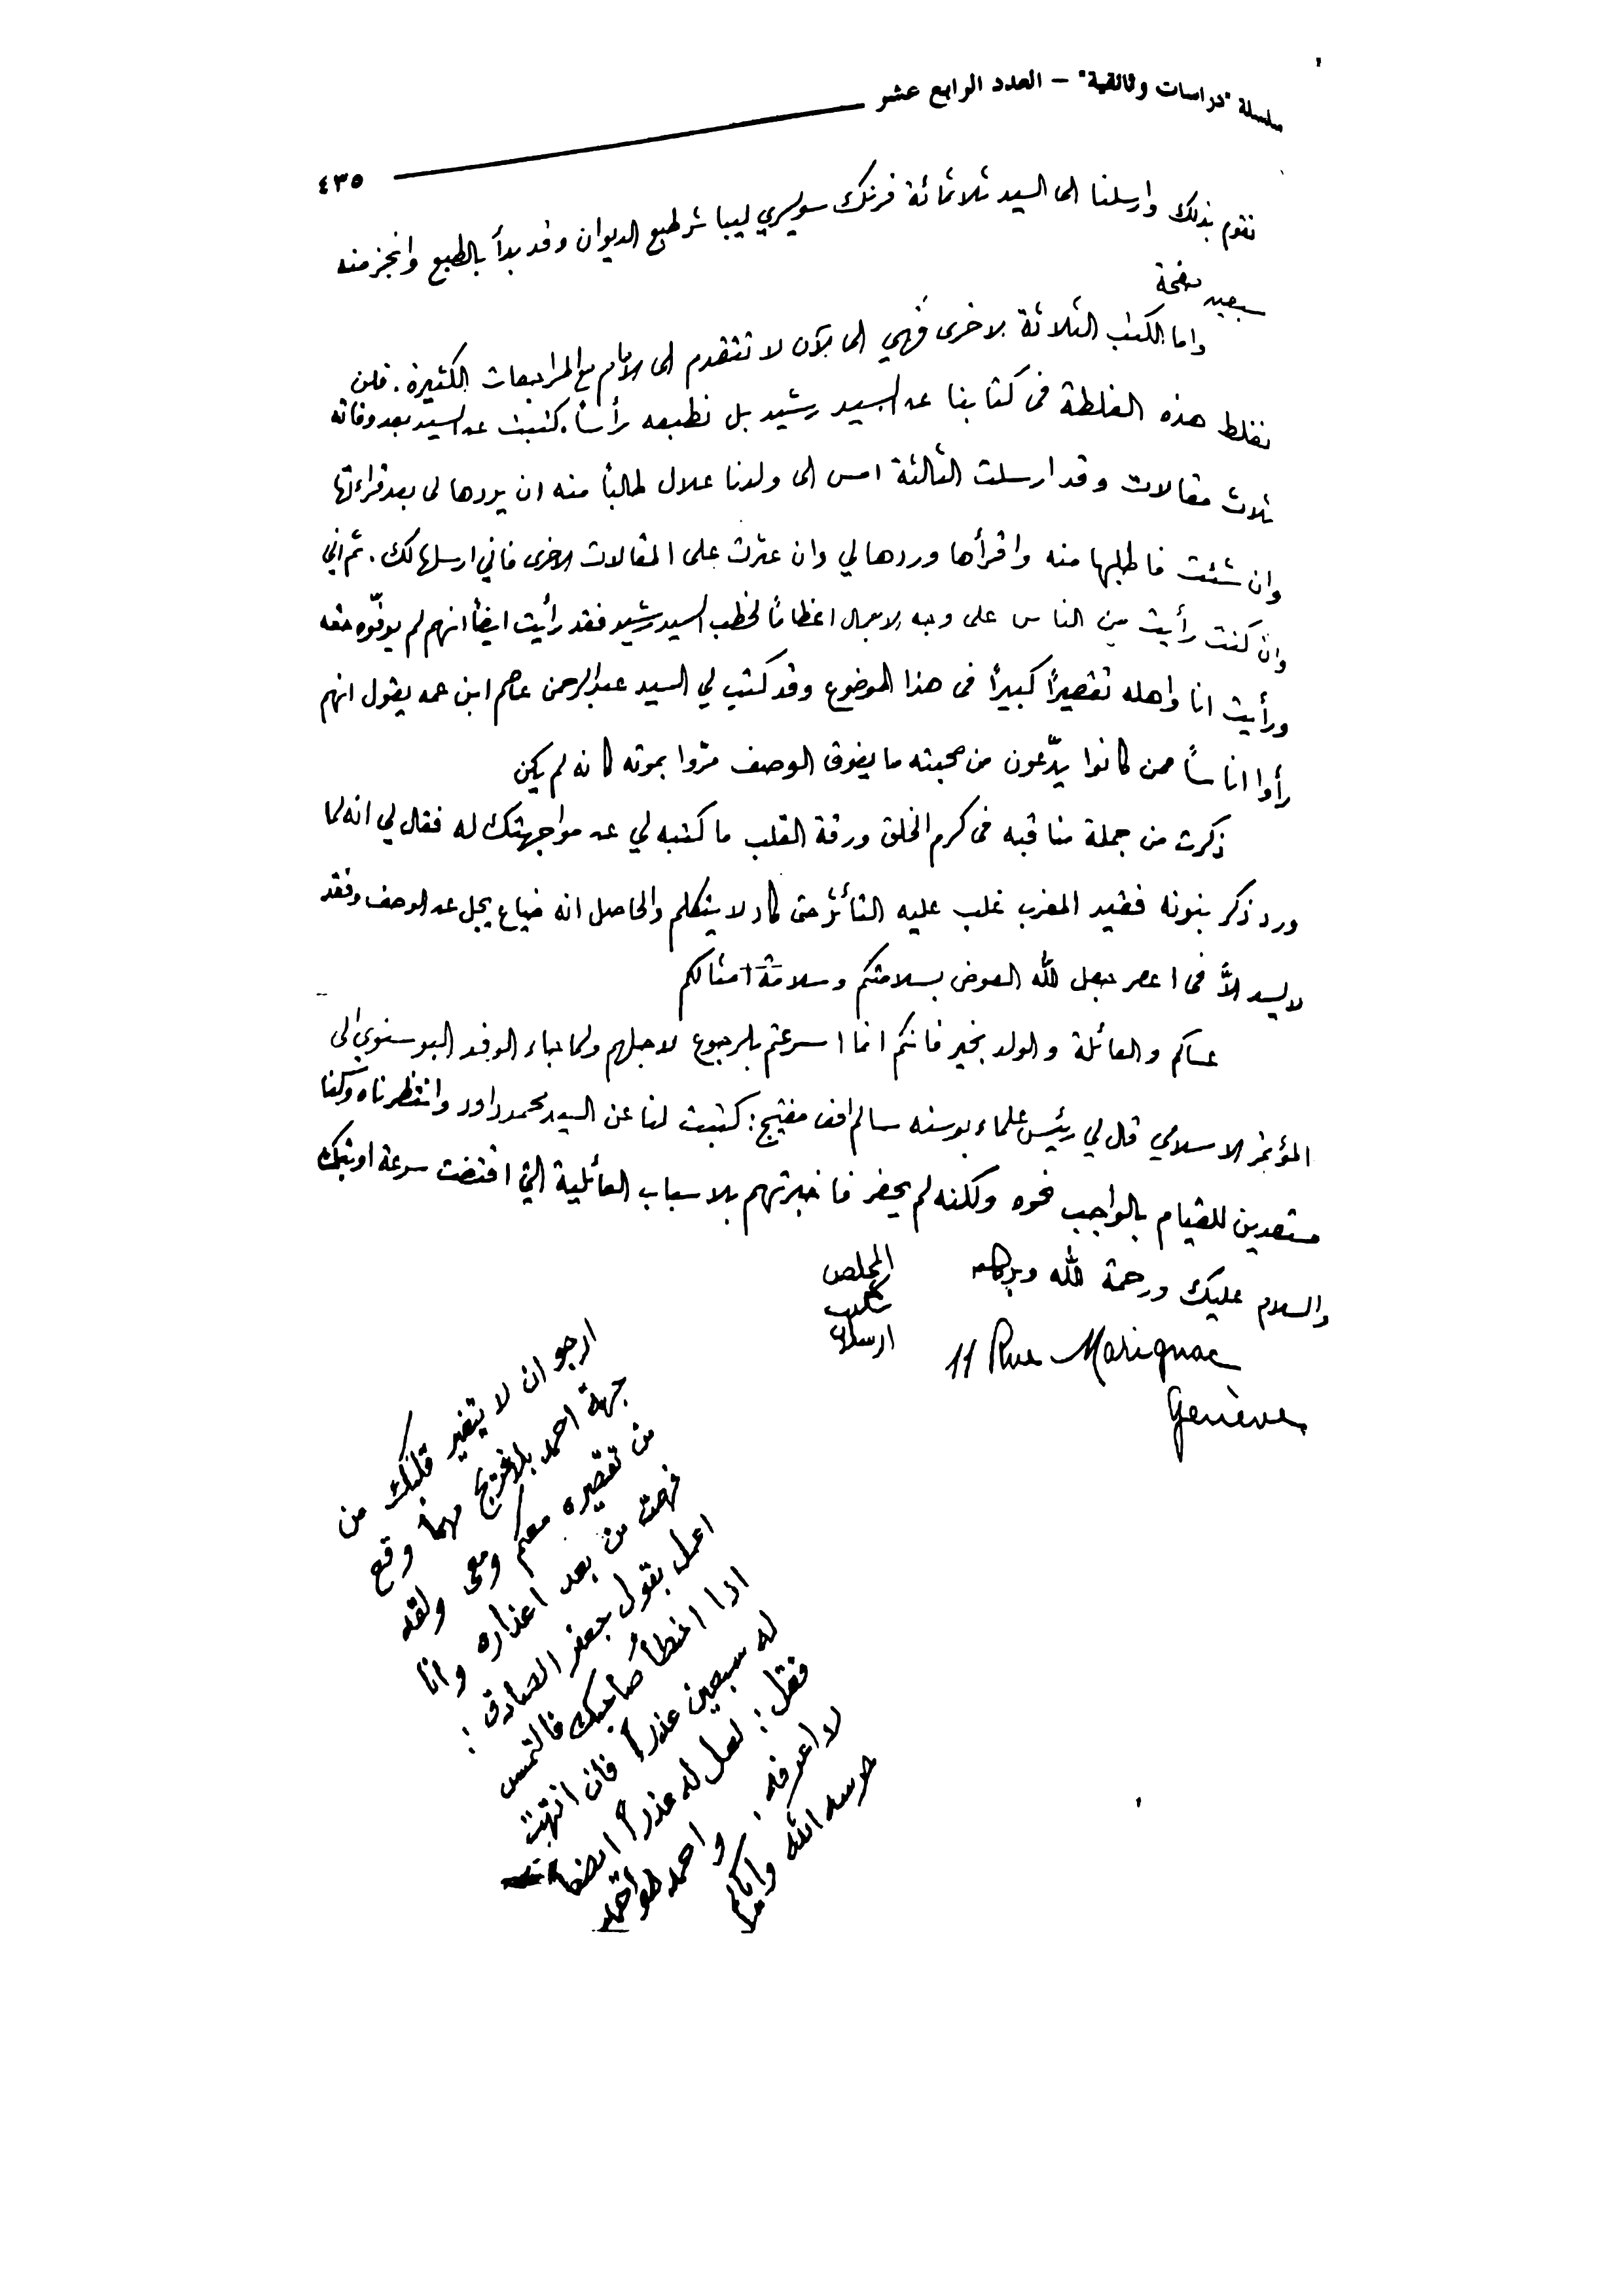 سلسلة "دراسات وثائقية" – العدد الرابع عشر
٤٣٥
نقوم بذلك وارسلنا الى السيد ثلاثمائة فرنك سويسري ليباشر طبع الديوان وقد بدأ بالطبع وانجز منه
سبعين صفحة
واما الكتب الثلاثة الاخرى فهي الى الآن لا تتقدم الى الامام مع المراجعات الكثيرة. فلن
نغلط هذه الغلطة فى كتابنا عن السيد رشيد بل نطبعه رأسًا. كتبت عن السيد بعد وفاته
ثلاث مقالات وقد ارسلت الثالثة امس الى ولدنا علال طالبًا منه ان يردها لى بعد قراءتها
وان شئت فاطلبها منه واقرأها وردها لي وان عثرت على المقالات الاخرى فاني ارسلها لك. ثم اني
وان كنت رأيت من الناس على وجه الاجمال اعظامًا لخطب السيد رشيد فقد رأيت ايضًا انهم لم يوفّوه حقه
ورأيت انا واهله تقصيرًا كبيرًا فى هذا الموضوع وقد كتب لي السيد عبدالرحمن عاصم ابن عمه يقول انهم
رأوا اناسًا ممن كانوا يدّعون من محبته ما يفوق الوصف مرّوا بموته كانه لم يكن
ذكرت من جملة مناقبه فى كرم الخلق ورقة القلب ما كتبه لي عن مواجهتك له فقال لي انه لما
ورد ذكر بنونه فقيد المغرب غلب عليه التأثر حتى كاد لا يتكلم والحاصل انه ضياع يجل عن الوصف وفقد
لا يسد الاَّ فى اعصر جعل الله العوض بسلامتكم وسلامة امثالكم
عساكم والعائلة والولد بخير فانكم انما اسرعتم بالرجوع لاجلهم ولما جاء الوفد البوسنوي الى
المؤتمر الاسلامي قال لي رئيس علماء بوسنه سالم افندي مفتيج: كتبت لنا عن السيد محمد داود وانتظرناه وكنا
مستعدين للقيام بالواجب نحوه ولكنه لم يحضر فاخبرتهم بالاسباب العائلية التي اقتضت سرعة اوبتك
والسلام عليك ورحمة الله وبركاته
المخلص
شكيب
ارسلان
11 Rue Marignac
Genève
ارجو ان لا يتغير قلبك من
جهة احمد بلافريج مهما وقع
من تقصيره معكم ومعى ولقد
فهمت من بعد اعذاره وانا
اعمل بقول جعفر الصادق:
اذا اخطأ صاحبك فالتمس
له سبعين عذراً فان انتهت
فقل: لعل له عذراً ايضاً
لا اعرفه. واحمد هو احمد
حرسه الله واياكم